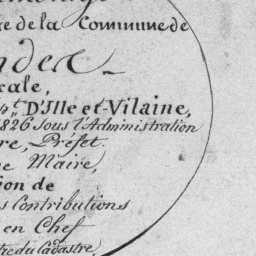 re de la Commune de
ndea
cale,
t. D'Ille et-Vilaine,
1826 Sous l'Administration
re, Préfet.
e Maire,
ion de
s Contributions
en Chef
tre du Cadastre,